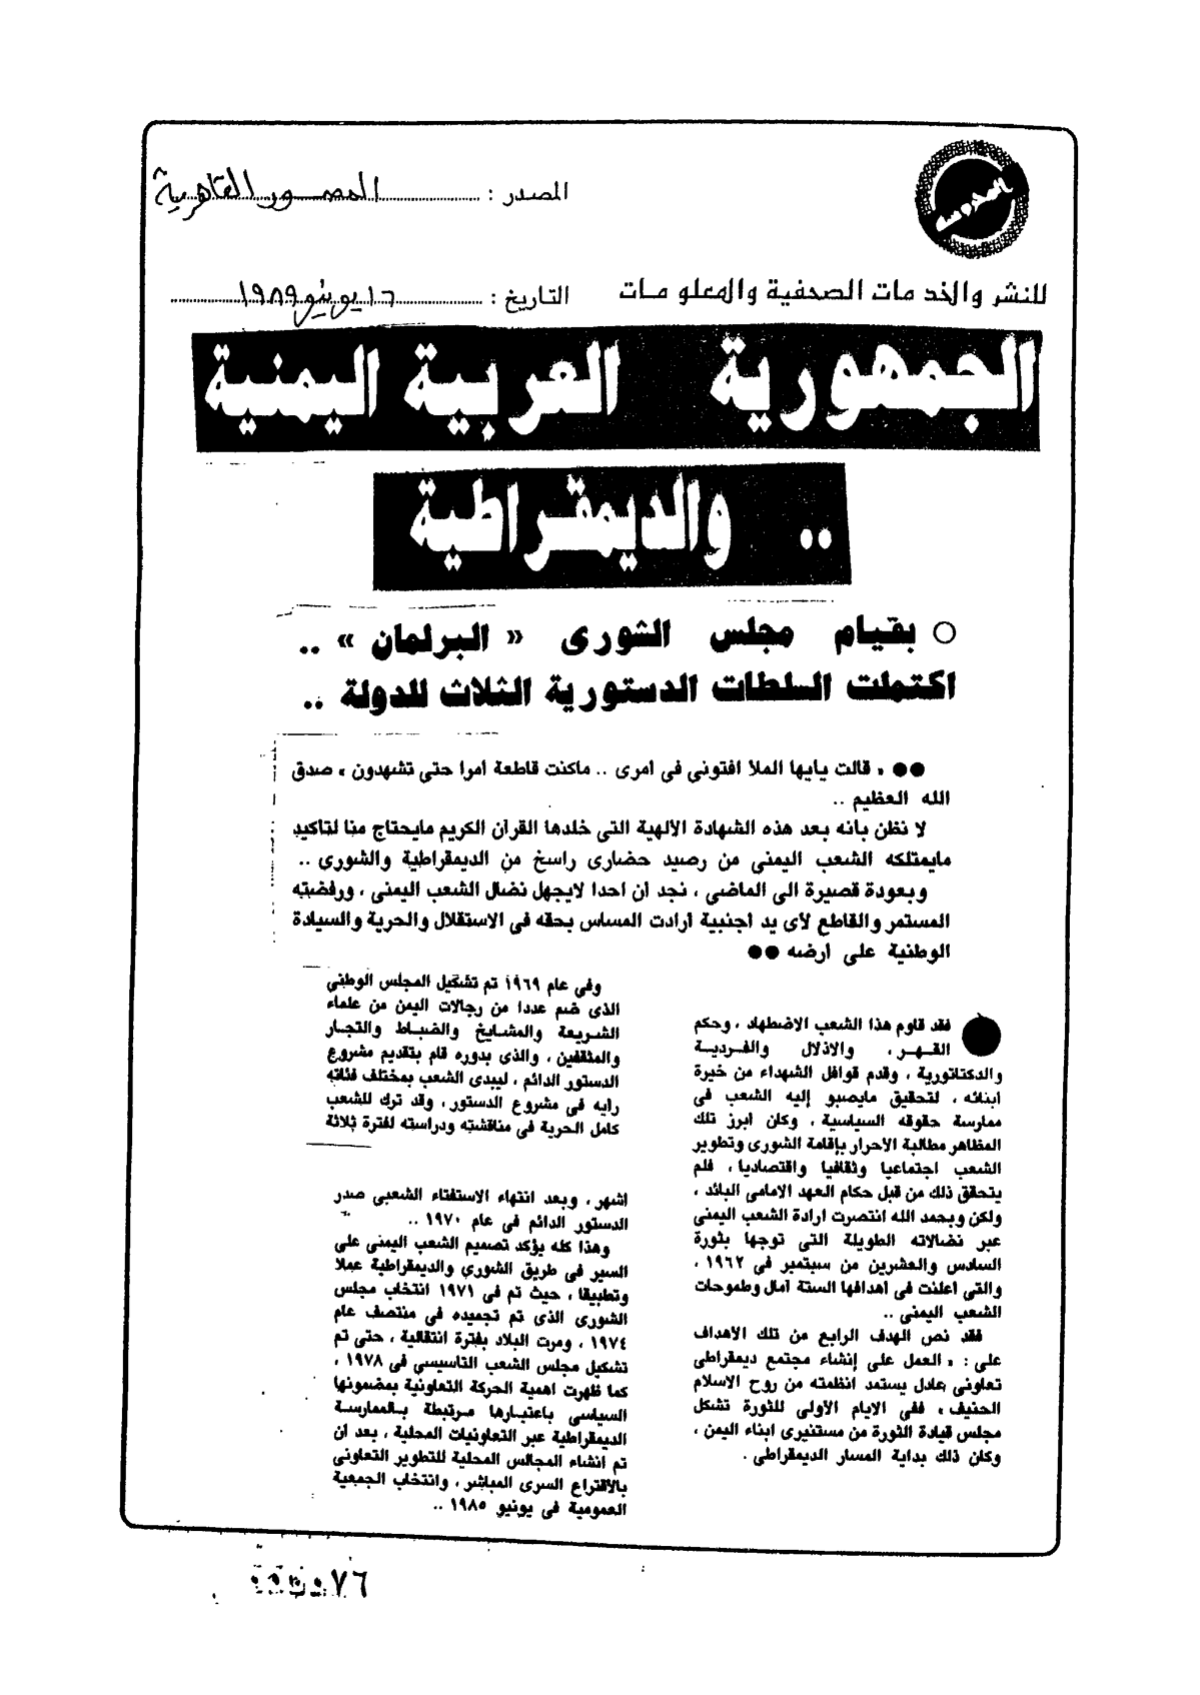 المحروسة
المصدر : المصور القاهرية
للنشر والخدمات الصحفية والمعلومات
التاريخ : ١٦ يونيو ١٩٨٩
الجمهورية العربية اليمنية
.. والديمقراطية
○ بقيام مجلس الشورى « البرلمان » ..
اكتملت السلطات الدستورية الثلاث للدولة ..
●● « قالت يايها الملا افتونى فى امرى .. ماكنت قاطعة امرا حتى تشهدون » صدق
الله العظيم ..
لا نظن بانه بعد هذه الشهادة الالهية التى خلدها القرآن الكريم مايحتاج منا لتاكيد
مايمتلكه الشعب اليمنى من رصيد حضارى راسخ من الديمقراطية والشورى ..
وبعودة قصيرة الى الماضى ، نجد ان احدا لايجهل نضال الشعب اليمنى ، ورفضته
المستمر والقاطع لأى يد اجنبية ارادت المساس بحقه فى الاستقلال والحرية والسيادة
الوطنية على ارضه ●●
فقد قاوم هذا الشعب الاضطهاد ، وحكم
القهر ، والاذلال والفردية
والدكتاتورية ، وقدم قوافل الشهداء من خيرة
ابنائه ، لتحقيق مايصبو إليه الشعب فى
ممارسة حقوقه السياسية ، وكان ابرز تلك
المظاهر مطالبة الاحرار بإقامة الشورى وتطوير
الشعب اجتماعيا وثقافيا واقتصاديا ، فلم
يتحقق ذلك من قبل حكام العهد الامامى البائد ،
ولكن وبحمد الله انتصرت ارادة الشعب اليمنى
عبر نضالاته الطويلة التى توجها بثورة
السادس والعشرين من سبتمبر فى ١٩٦٢ ،
والتى اعلنت فى اهدافها الستة آمال وطموحات
الشعب اليمنى ..
فقد نص الهدف الرابع من تلك الاهداف
على : « العمل على إنشاء مجتمع ديمقراطى
تعاونى عادل يستمد انظمته من روح الاسلام
الحنيف » ففى الايام الاولى للثورة تشكل
مجلس قيادة الثورة من مستنيرى ابناء اليمن ،
وكان ذلك بداية المسار الديمقراطى .
وفى عام ١٩٦٩ تم تشكيل المجلس الوطنى
الذى ضم عددا من رجالات اليمن من علماء
الشريعة والمشايخ والضباط والتجار
والمثقفين ، والذى بدوره قام بتقديم مشروع
الدستور الدائم ، ليبدى الشعب بمختلف فئاته
رايه فى مشروع الدستور ، وقد ترك للشعب
كامل الحرية فى مناقشته ودراسته لفترة ثلاثة
اشهر ، وبعد انتهاء الاستفتاء الشعبى صدر
الدستور الدائم فى عام ١٩٧٠ ..
وهذا كله يؤكد تصميم الشعب اليمنى على
السير فى طريق الشورى والديمقراطية عملا
وتطبيقا ، حيث تم فى ١٩٧١ انتخاب مجلس
الشورى الذى تم تجميده فى منتصف عام
١٩٧٤ ، ومرت البلاد بفترة انتقالية ، حتى تم
تشكيل مجلس الشعب التاسيسى فى ١٩٧٨ ،
كما ظهرت اهمية الحركة التعاونية بمضمونها
السياسى باعتبارها مرتبطة بالممارسة
الديمقراطية عبر التعاونيات المحلية ، بعد ان
تم انشاء المجالس المحلية للتطوير التعاونى
بالاقتراع السرى المباشر ، وانتخاب الجمعية
العمومية فى يونيو ١٩٨٥ ..